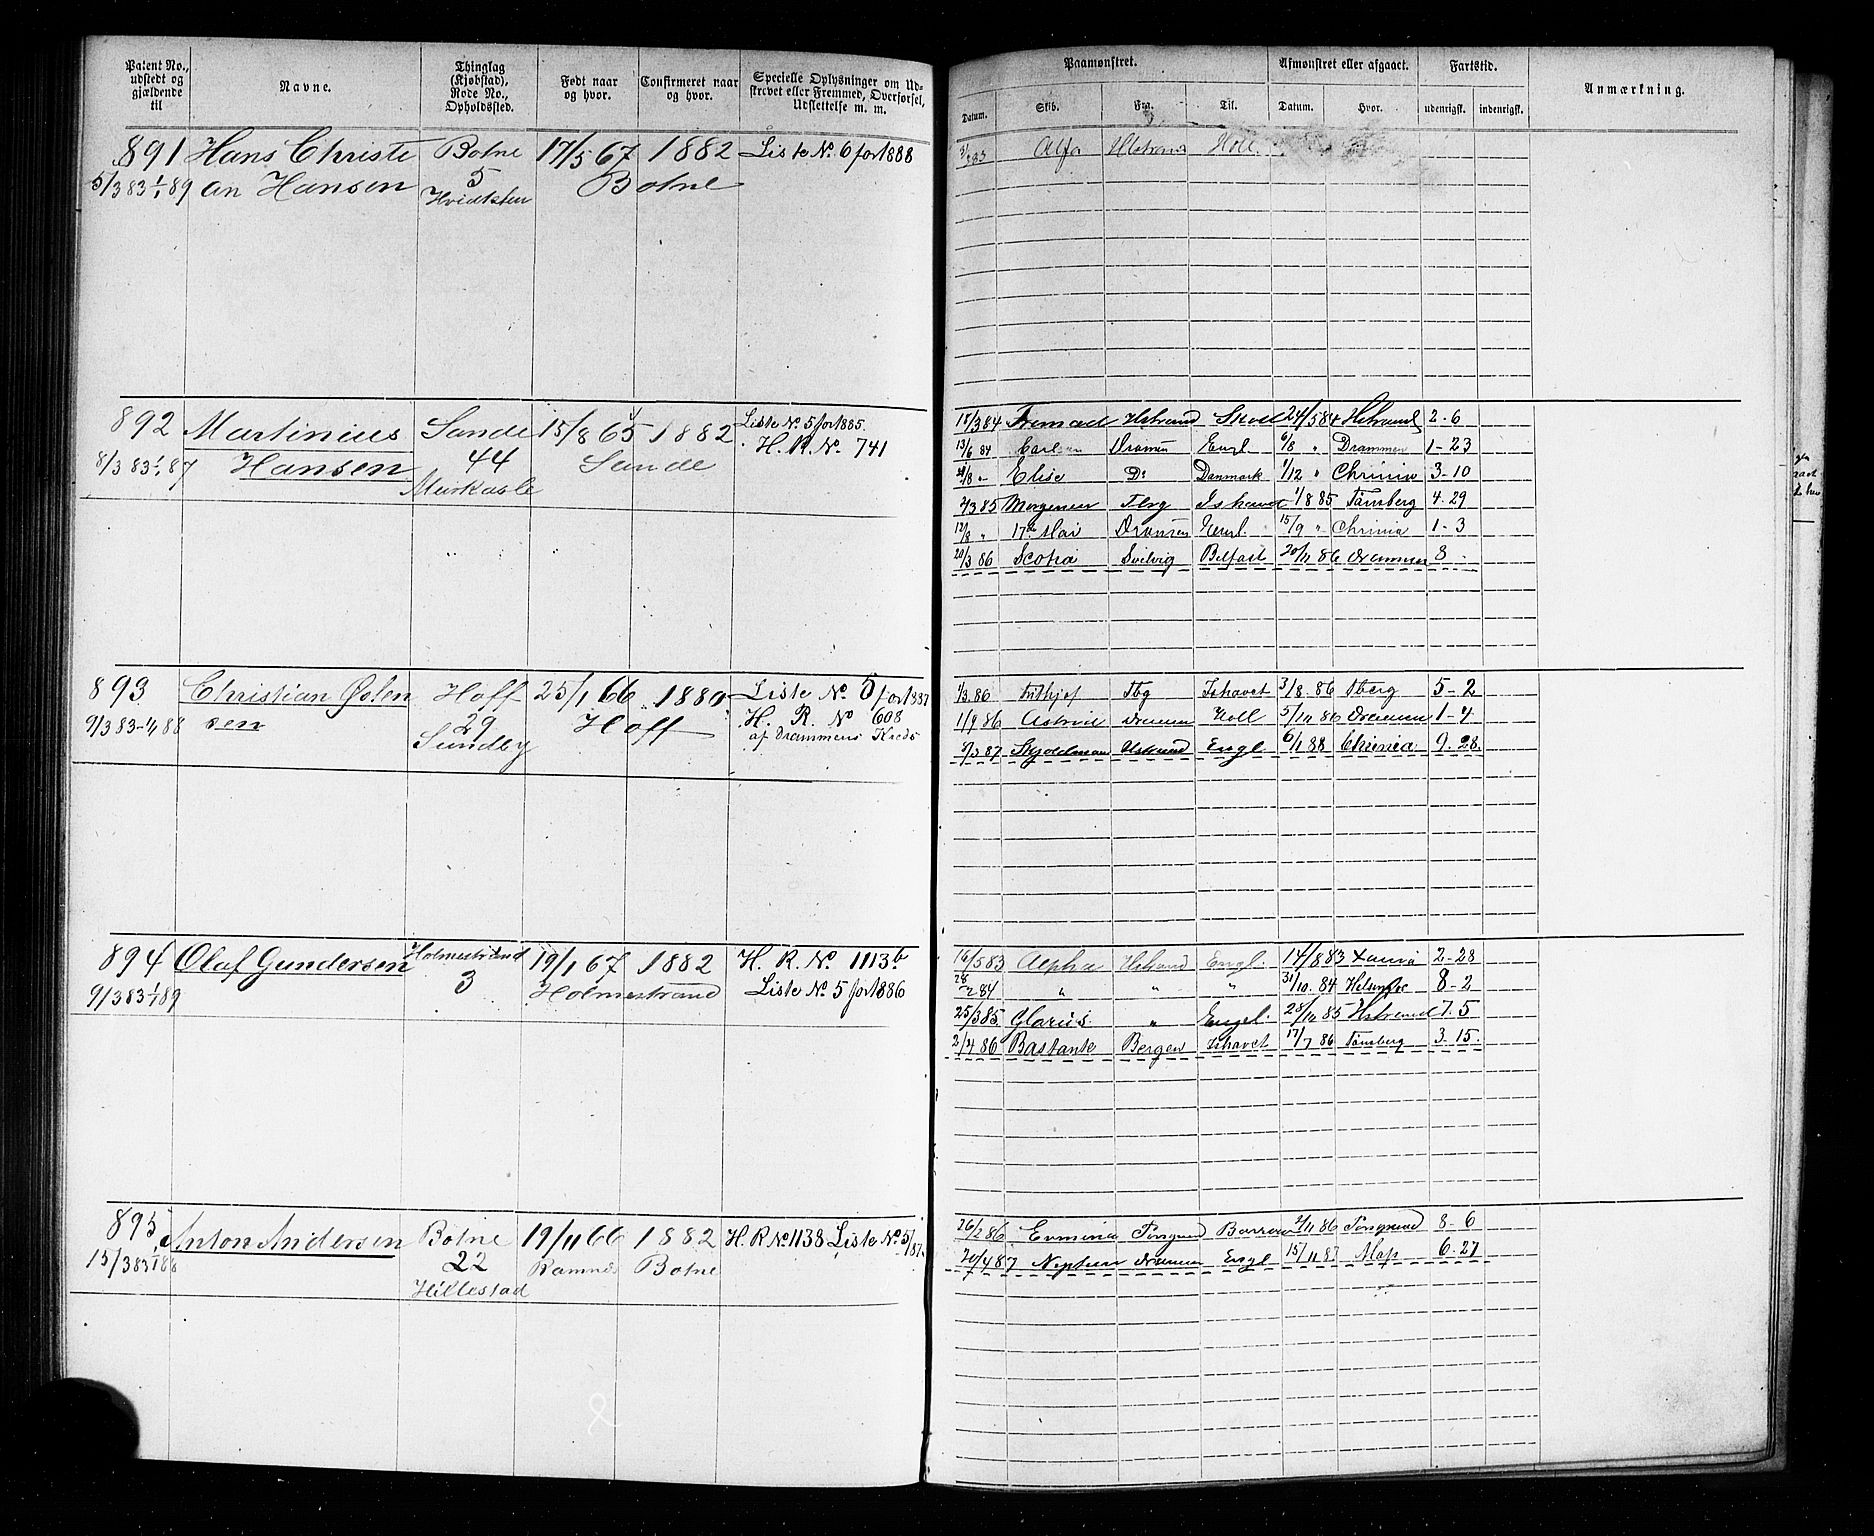 Patent No., udstedt og gjældende til
Navne.
Thinglag (Kjøbstad), Rode No., Opholdssted.
Født naar og hvor.
Confirmeret naar og hvor.
Specielle Oplysninger om Udskrevet eller Fremmed, Overførsel, Udslettelse m. m.
Paamønstret.
Afmønstret eller afgaaet.
Fartstid.
Anmærkning.
Datum. Skib. Fra. Til. Datum. Hvor. udenrigsk. indenrigsk.
891 Hans Christi Botne 17/5 67 1882 Liste No. 6 for 1888
5/3 83 1/1 89 an Hansen 5 Botne
Hvidtsten
Hstrand Holl.
892 Martinius Sande 15/8 65 1882 Liste No. 5 for 1885.
8/3 83 1/1 87 Hansen 44 Sande H. R. No. 741
Fremad Hstrand 24/5 84 Hstrand 2-6
13/6 84 Drammen Engl. 6/8 " Drammen 1-23
Elise Do Danmark 1/12 " Chrinia 3-10
Tbrg Ishavet 1/8 85 Tønsberg 4-29
12/8 " 17de Mai Drammen 15/9 " Chrinia 1-3
20/3 86 Scotia Svelvig Belfast 86 Drammen 8 -
893 Christian Hoff 25/1 66 1880 Liste No. 5 for 1887
9/3 83-1/1 88 sen 29 Hoff H. R. No 608
Sundby af Drammens Kreds
1/3 86 Frithjof Tbg Ishavet 31/8 86 Tberg 5-2
1/9 86 Drammen Holl 5/11 86 Drammen 1-4
Skjoldmøen Hstrand Engl. 6/1 88 Chrinia 9-28
894 Olaf Gundersen Holmestrand 19/1 67 1882 H. R. No. 1113b
9/3 83 1/1 89 3 Holmestrand Liste No. 5 for 1886
16/5 83 Alpha Hstrand Engl. 14/8 83 2-28
28/2 84 " " " 31/10 84 8-2
25/3 85 Glarus " Engel. 28/10 85 Hstrand 7-5
2/4 86 Bastante Bergen Ishavet 17/7 86 Tønsberg 3-15
895 Anton Andersen Botne 19/11 66 1882 H. R No 1138 Liste No. 5/87.
15/3 83 1/1 88 22 Ramnes Botne
Hillestad
26/2 86 Erminia Porsgrund 2/11 86 Porsgrund 8-6
20/4 87 Neptun Drammen Engl 15/11 87 Moss 6-27